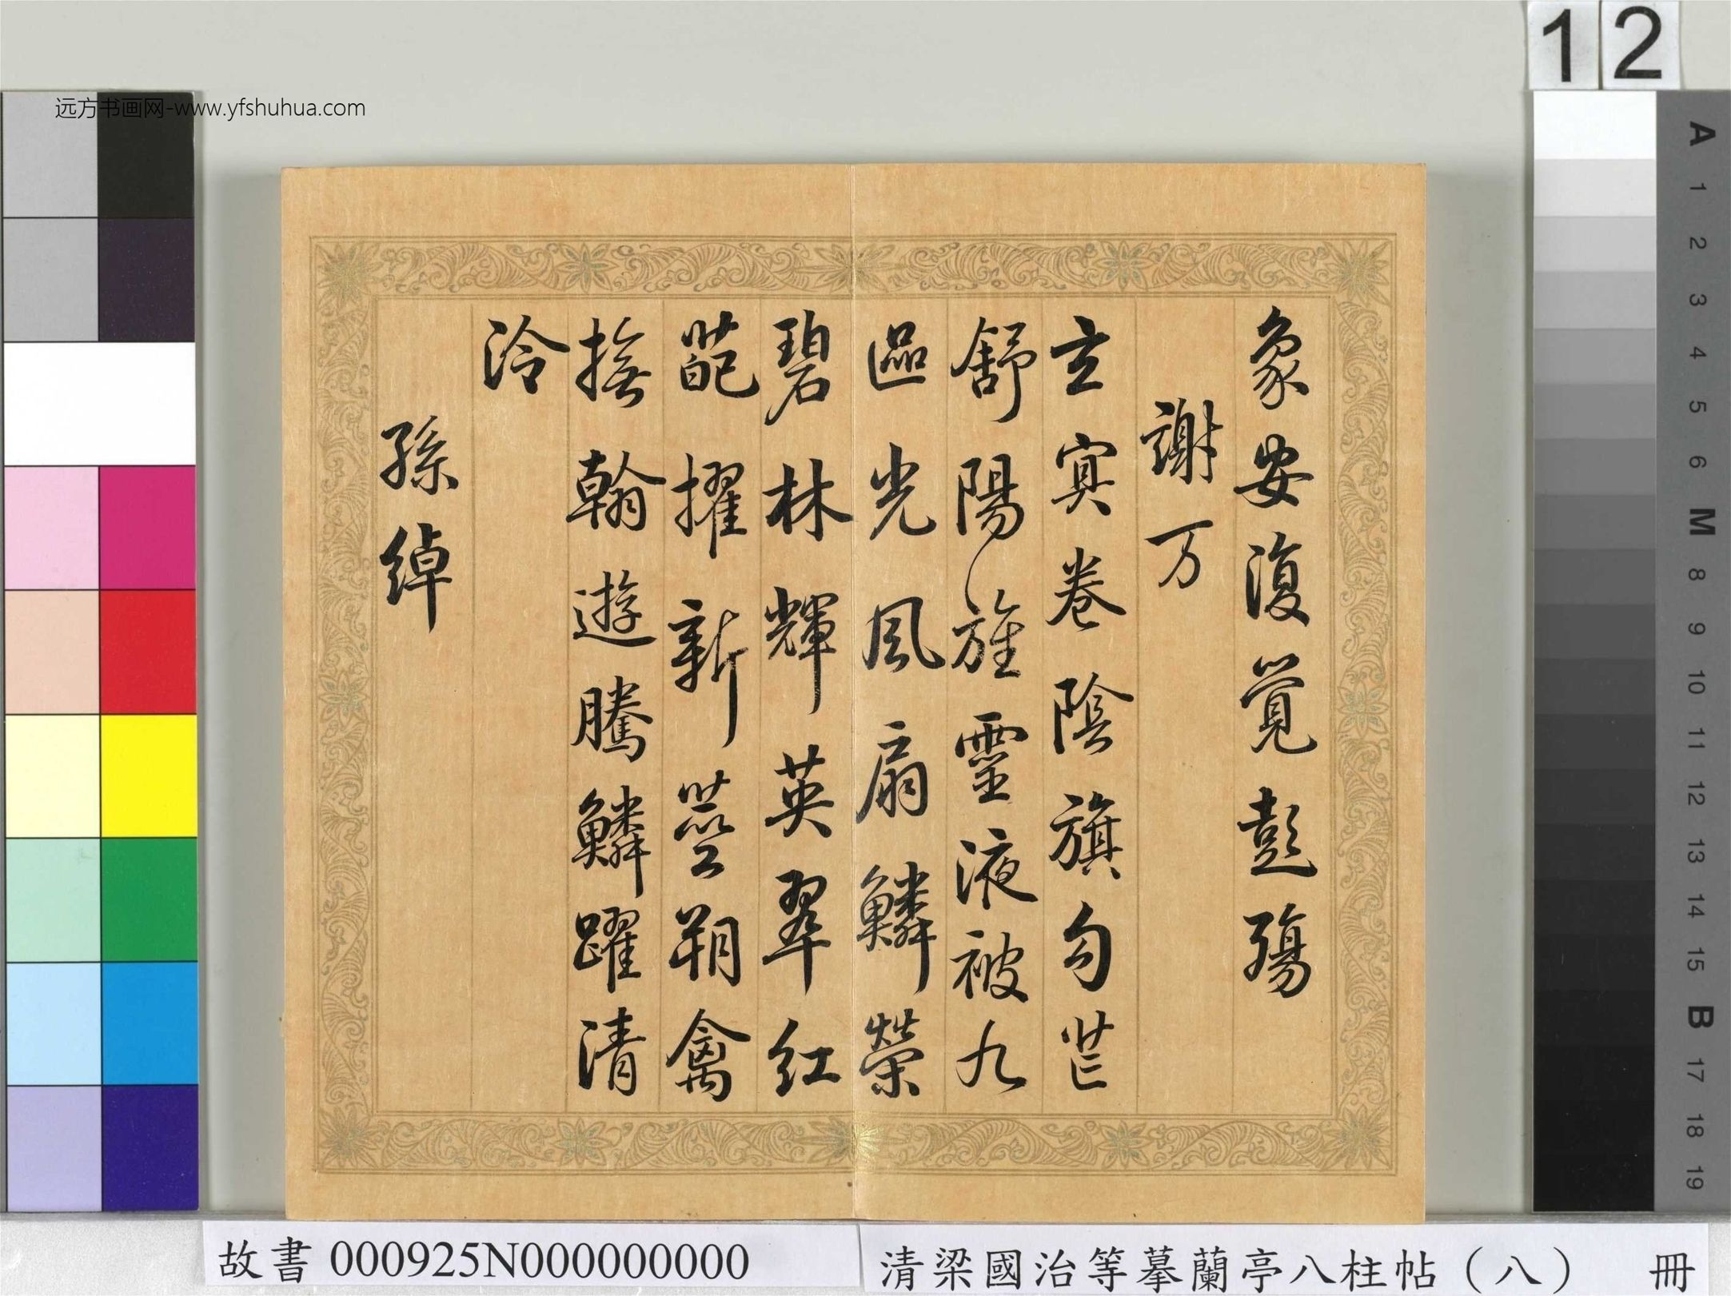 12
远方书画网-www.yfshuhua.com
象安復覺彭殤
謝万
玄冥卷陰旗勾芒
舒陽旌靈液被九
區光風扇鱗榮
碧林輝英翠紅
葩擢新莖翔禽
撫翰遊騰鱗躍清
泠
孫綽
A
1
2
3
4
5
6
M
8
9
10
11
12
13
14
15
B
17
18
19
故書 000925N000000000
清梁國治等摹蘭亭八柱帖（八） 冊